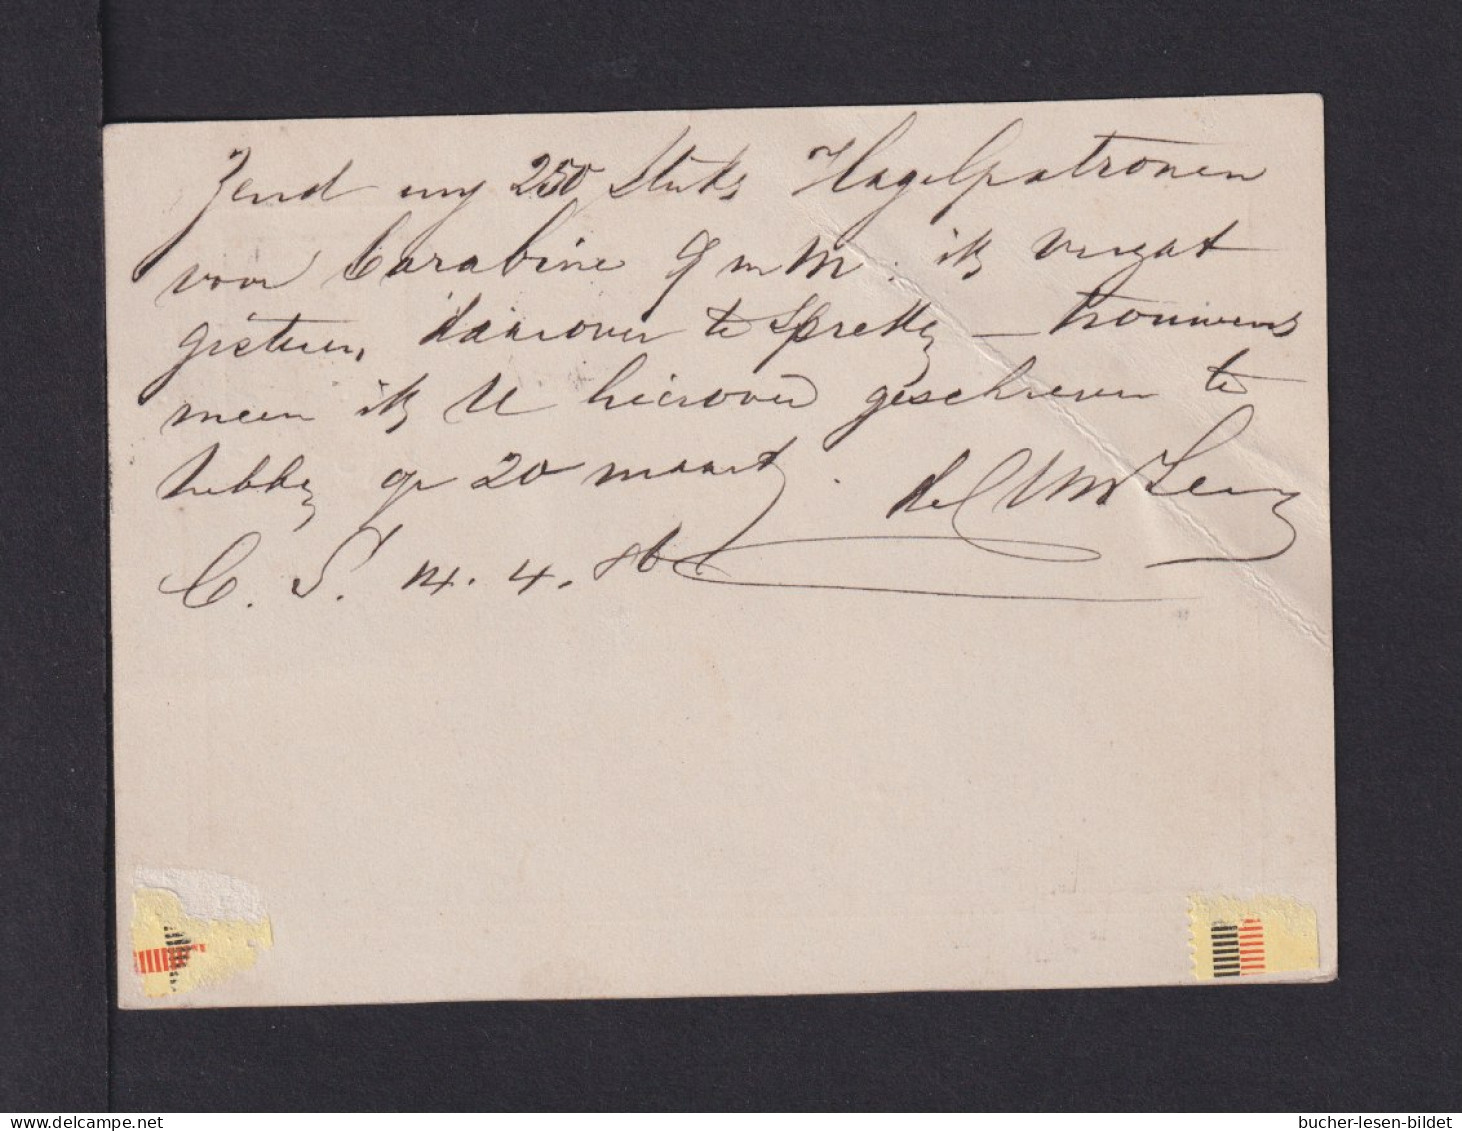 Zend my 250 Stuks Hagelpatronen
voor Carabine 9 mM. ik vergat
gisteren, daarover te Sprekken – trouwens
meen ik U hierover geschreven te
hebben op 20 maart.
C. S. 14. 4. 86
bucher-lesen-bildet